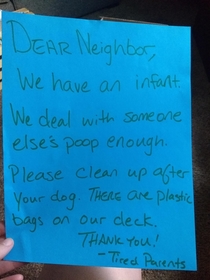 DEAR Neighbor,
We have an infant.
We deal with someone
else's poop enough.
Please clean up after
your dog. THERE are plastic
bags on our deck.
THANK YOU!
-Tired Parents